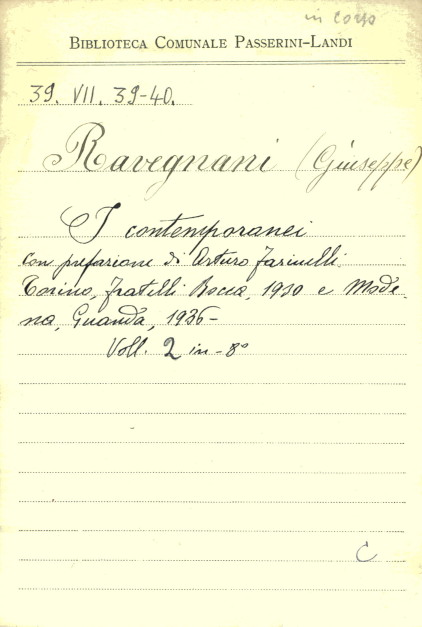 in corso
BIBLIOTECA COMUNALE PASSERINI-LANDI
39. VII. 39-40.
Ravegnani (Giuseppe)
I contemporanei
con prefazione di Arturo Farinelli.
Torino, fratelli Bocca, 1930 e Mode-
na, Guanda, 1936-
Voll. 2 in-8°
C